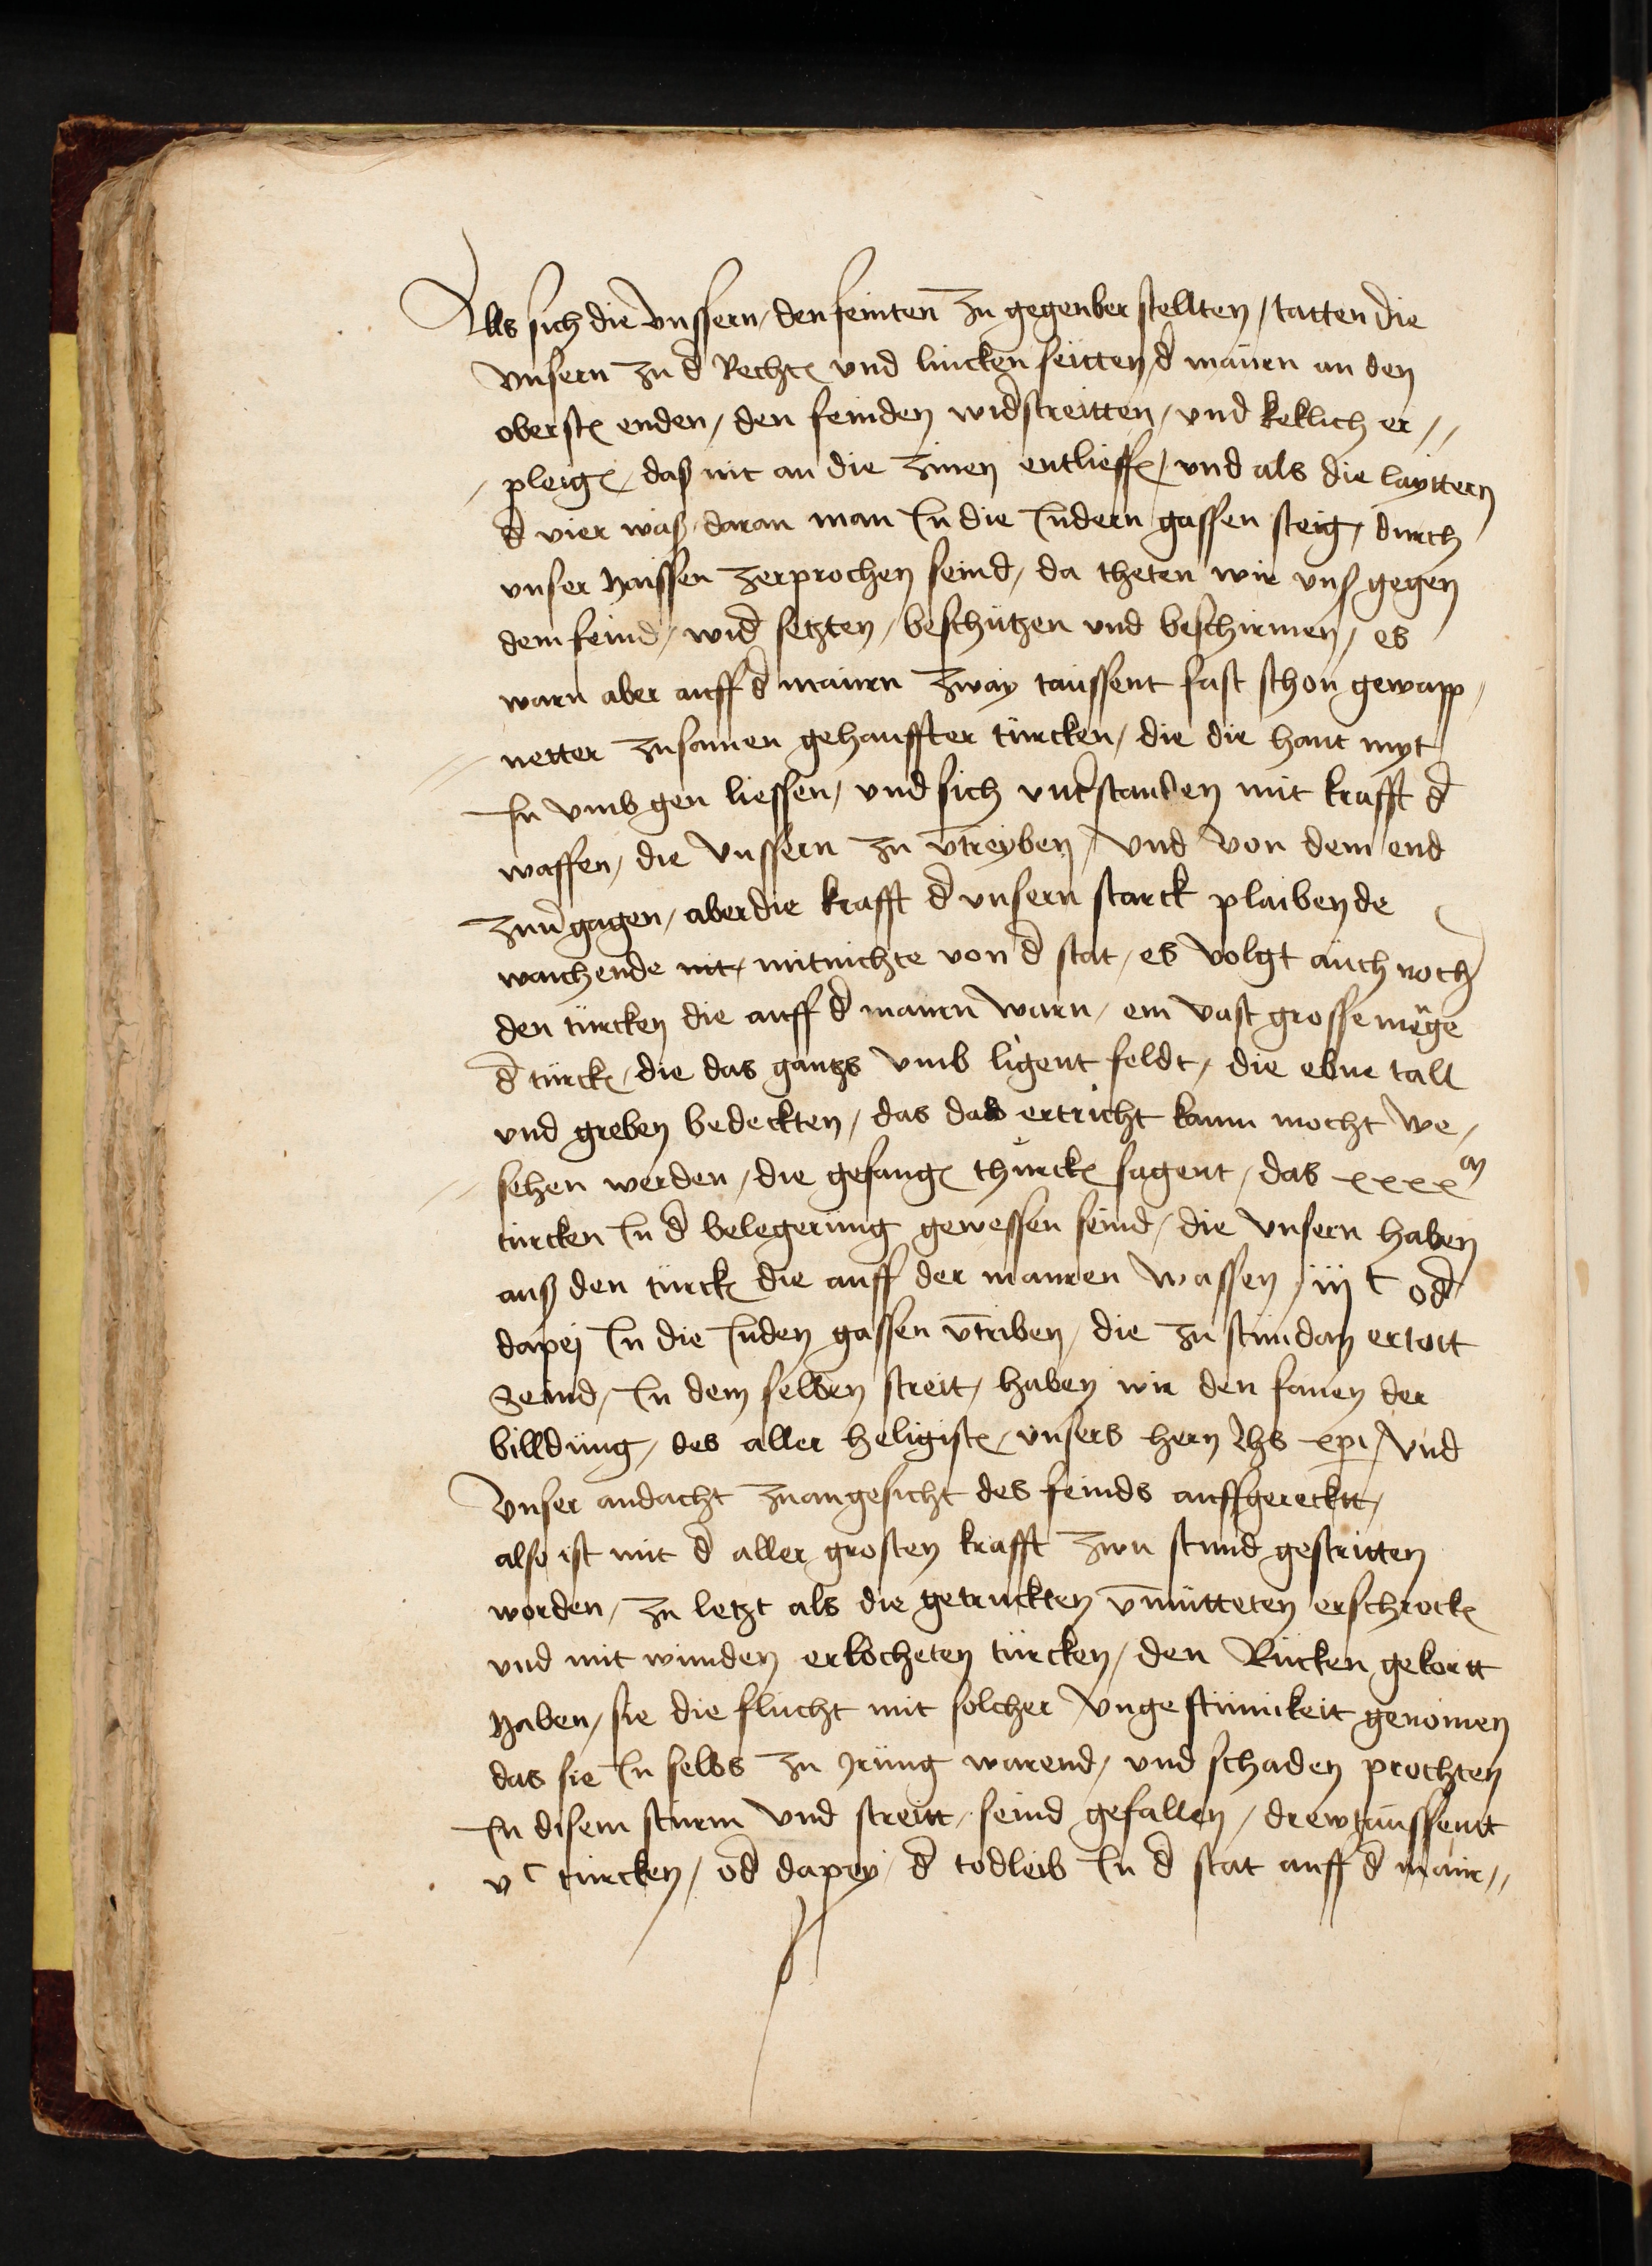 Alls sich die vnssern / den feinten̄ zu gegenber stellten / tatten die
vnsern zu d̄ Rechtn̄ vnd lincken seitten d̄ maüren an den
oberstn̄ enden / den feinden widstreitten / vnd keklich er //
pleign̄ / daß nit an die zinen entlieffn̄ / vnd als die layttern
d̄ vier waß / daran man In die Indern gassen steig / durch
vnser haissen zerprochen seind / da theten wir vnß gegen
dem feind / wid̄ setzten / beschützen vnd beschirmen / es
warn aber auff d̄ mauren zway taussent fast schon gewapp /
netter zusamen gehauffter türcken / die die hant myt
In vmb gen liessen / vnd sich vnt̄standen mit krafft d̄
waffen / die vnssern zu v̄treyben / vnd von dem end
zuu̅gagen / aber die krafft d̄ vnsern starck plaibende
waichende nit / mitnichte von d̄ stat / es volgt aüch noch
den türcken die auff d̄ mauren warn / ein vast grosse mēge
d̄ türckn̄ / die das gantzs vmb ligent feldt / die ebne tall
vnd greben bedeckten / das das ertricht kaum mocht we /
sehen werden / die gefangn̄ thürckn̄ sagent / das xxxx m
türcken In d̄ belegerüng gewessen seind / die vnsern haben
auß den türckn̄ die auff der mauren wassen / iij c od̄
dapej In die Inden gassen v̄triben / die zu stundan ertott
Seind / In dem selben streit / haben wir den fanen der
billdüng / des aller heligistn̄ / vnsers hern Jhs xpi / vnd
vnser andacht zuangesicht des feinds auffgerecktt /
also ist mit d̄ aller grosten krafft zwu stund gestritten
worden / zu letzt als die getruckten v̄mütteten erschrockn̄
vnd mit wunden erlocheten türcken / den Rücken gekortt
haben / sie die flücht mit solcher vngestümikeit genomen
das sie In selbs zu Jrüng warend / vnd schaden prochten
In disem sturm vnd streitt / seind gefallen / drewtaussentt
v c türcken / od̄ dapey / d̄ todleib In d̄ stat auff d̄ maur //